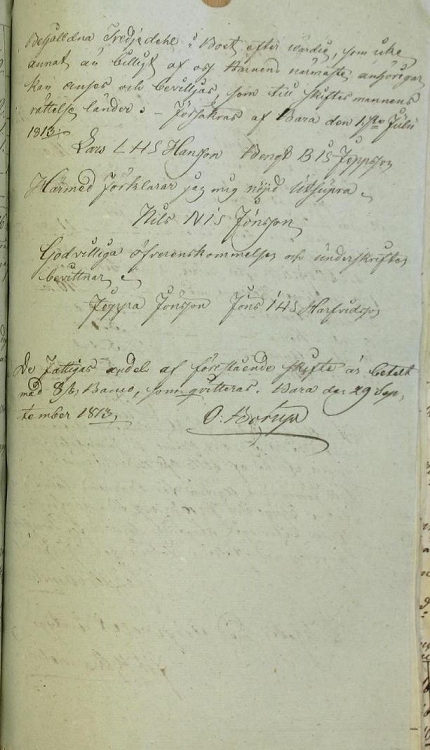 Behålldna Tredjedehl i Boet efter wärdie, som icke
annat än billigt af oss Barnens närmaste anhörigar
kan anses och bevilljas, som till skiftesmannens
rättelse länder. – Försäkras af Bara den 1ste Julii
1813.
Lars LHS Hansson Bengt BIS Jeppsson
Härmed förklarar jag mig nöjd ut supra
Nils NIS Jönsson
Godvilliga öfverenskommelser och underskrifter
bevittnar
Jeppa Jönsson Jöns IHS Harfvidsson
De Fattigas andel af förestående skifte är betalt
med 8 sk Banco, som qvitteras. Bara den 29 Sep-
tember 1813.
O. Borup